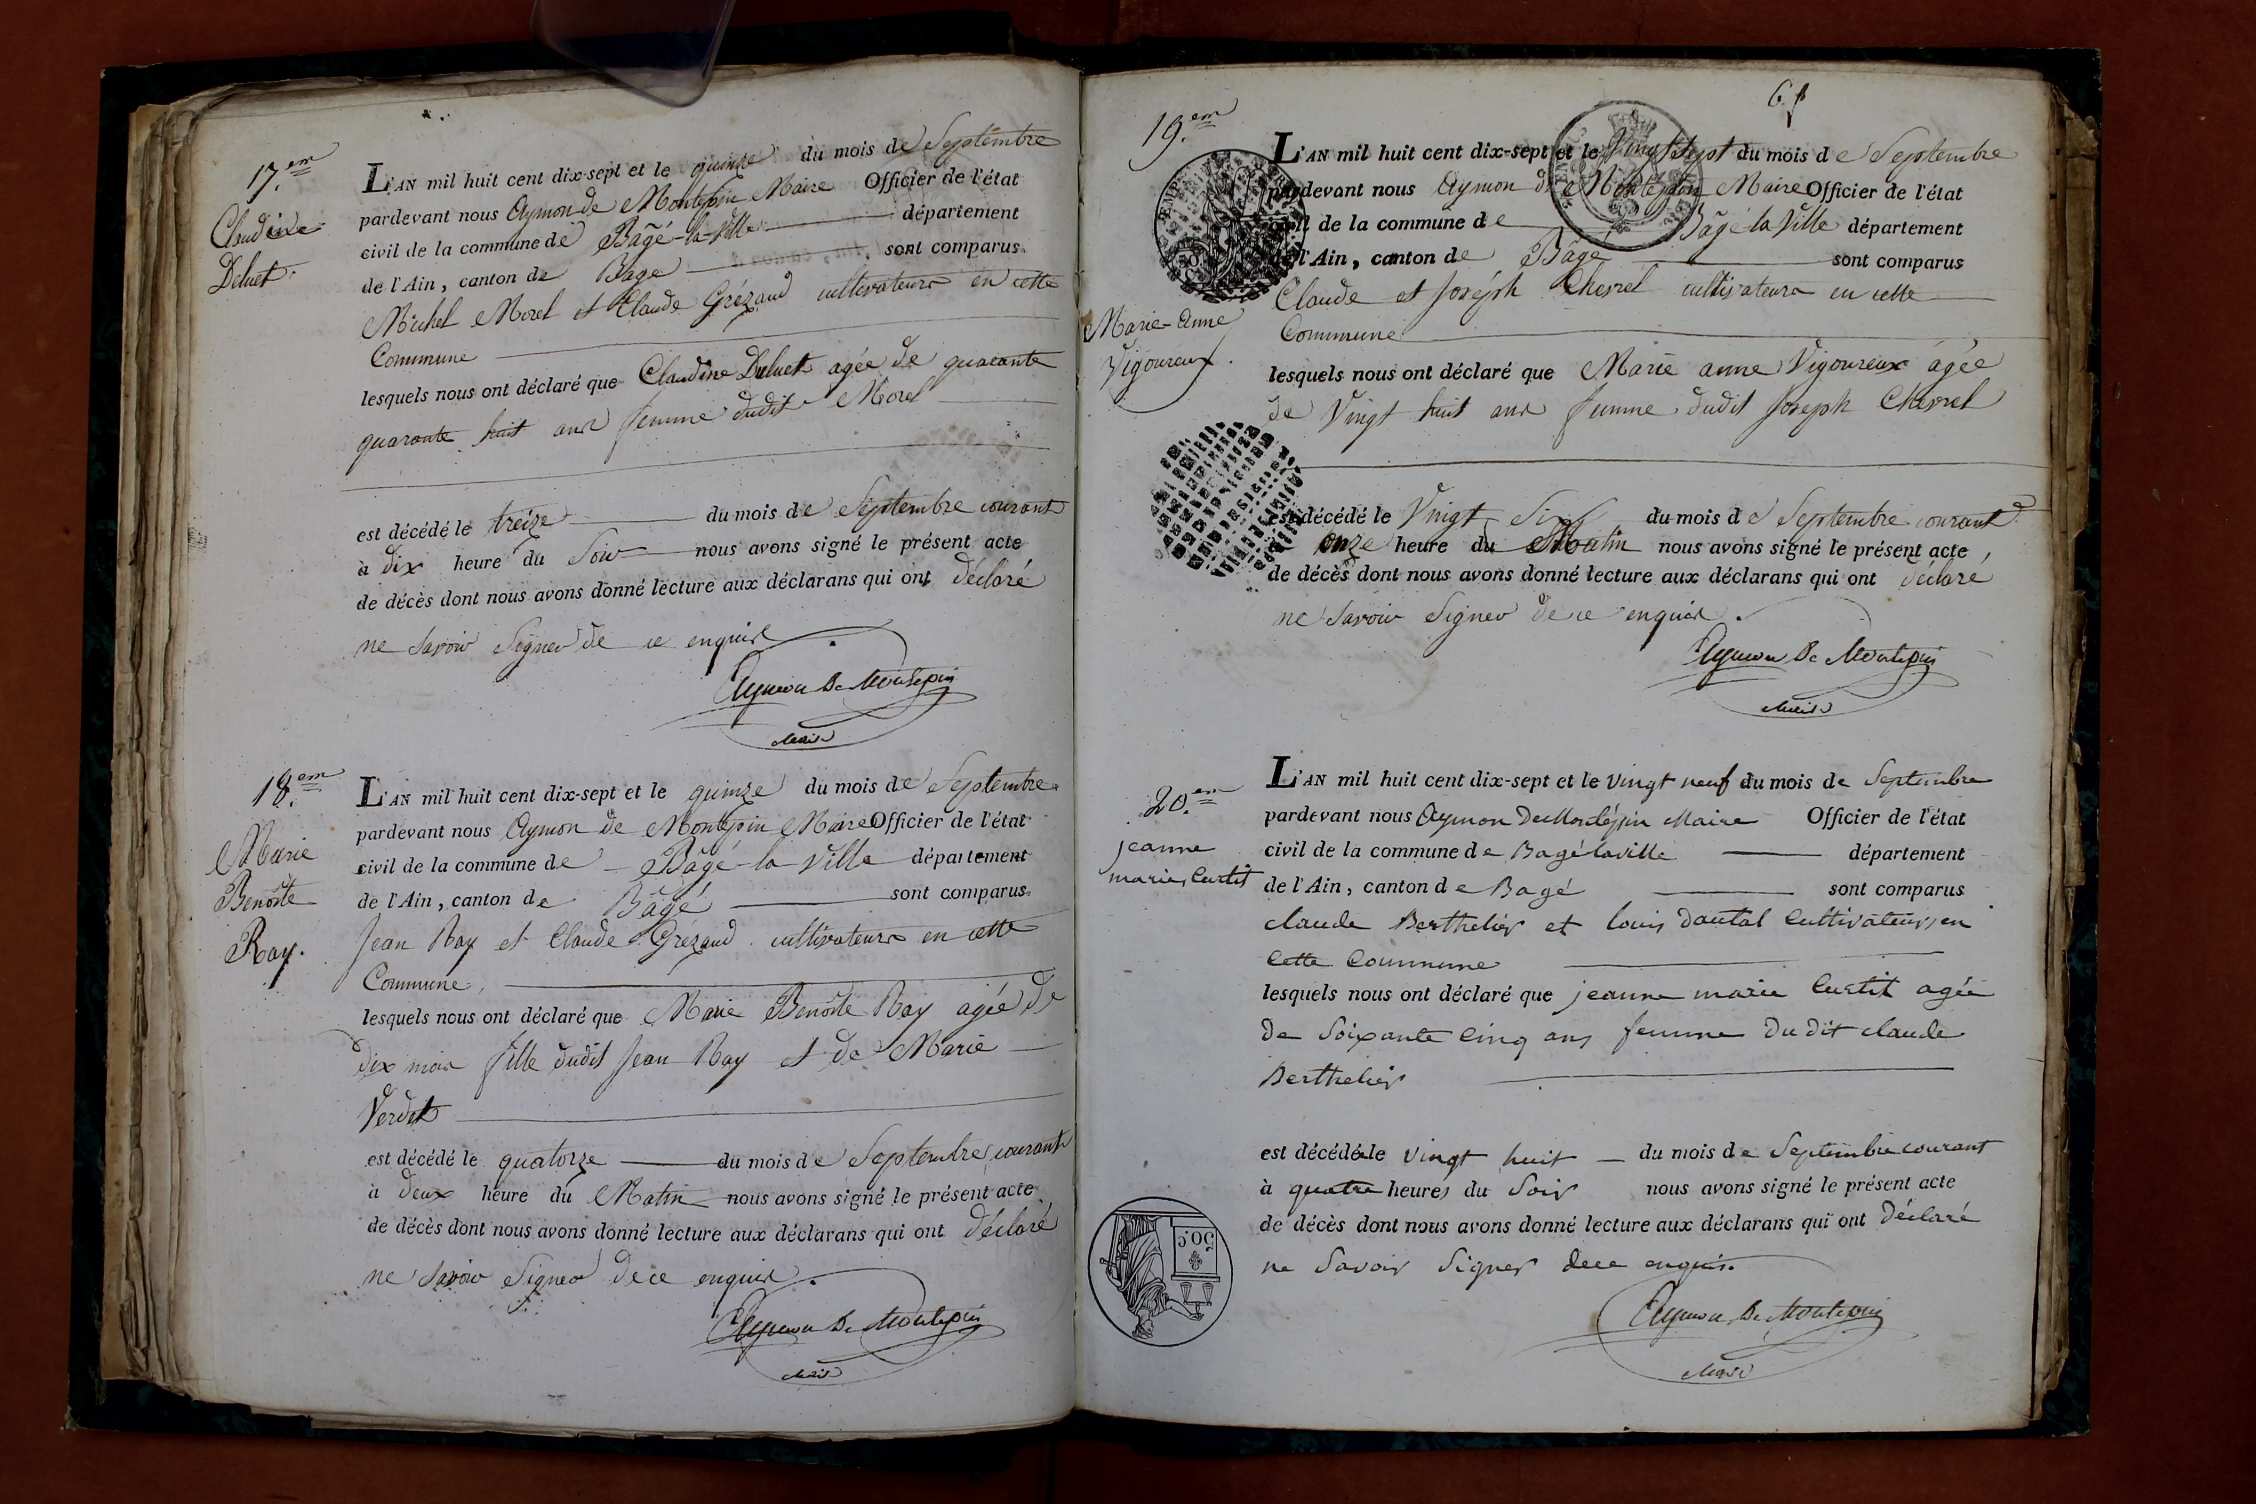 17.em
Claudine
Deluet.
L'AN mil huit cent dix-sept et le quinze du mois de Septembre
pardevant nous Aymon de Montépin Maire Officier de l'état
civil de la commune de Bâgé-la-Ville département
de l'Ain, canton de Bâgé sont comparus
Michel Morel et Claude Grézaud cultivateurs en cette
Commune
lesquels nous ont déclaré que Claudine Deluet agée de quarante
quarante huit ans femme dudit Morel
est décédé le treize du mois de Septembre courant
à dix heure du Soir nous avons signé le présent acte
de décès dont nous avons donné lecture aux déclarans qui ont déclaré
ne savoir Signer de ce enquis
Aymon De Montepin
Maire
18.em
Marie
Benoîte
Ray.
L'AN mil huit cent dix-sept et le quinze du mois de Septembre
pardevant nous Aymon de Montépin Maire Officier de l'état
civil de la commune de Bâgé-la-Ville département
de l'Ain, canton de Bâgé sont comparus
Jean Ray et Claude Grezaud cultivateurs en cette
Commune,
lesquels nous ont déclaré que Marie Benoîte Ray agée de
dix mois fille dudit Jean Ray et de Marie
Verdet
est décédé le quatorze du mois de Septembre courant
à deux heure du Matin nous avons signé le présent acte
de décès dont nous avons donné lecture aux déclarans qui ont déclaré
ne savoir Signer de ce enquis.
Aymon De Montepin
Maire
19.em
Marie-Anne
Vigoureux.
L'AN mil huit cent dix-sept et le Vingt Sept du mois de Septembre
pardevant nous Aymon de Montépin Maire Officier de l'état
civil de la commune de Bâgé-la-Ville département
de l'Ain, canton de Bâgé sont comparus
Claude et Joseph Chevrel cultivateurs en cette
Commune
lesquels nous ont déclaré que Marie anne Vigoureux agée
de Vingt huit ans femme dudit Joseph Chevrel
est décédé le Vingt Six du mois de Septembre courant
onze heure du Matin nous avons signé le présent acte
de décès dont nous avons donné lecture aux déclarans qui ont déclaré
ne savoir Signer de ce enquis.
Aymon De Montepin
Maire
20.em
jeanne
marie Curtit
L'AN mil huit cent dix-sept et le vingt neuf du mois de Septembre
pardevant nous Aymon De Montépin Maire Officier de l'état
civil de la commune de Bagé laville département
de l'Ain, canton de Bagé sont comparus
claude Berthelier et louis dautal Cultivateurs en
Cette Commune
lesquels nous ont déclaré que jeanne marie Curtit agée
de Soixante Cinq ans femme du dit claude
Berthelier
est décédé le vingt huit du mois de Septembre courant
à quatre heures du Soir nous avons signé le présent acte
de décès dont nous avons donné lecture aux déclarans qui ont déclaré
ne Savoir Signer dece enquis.
Aymon De Montepin
Maire
50c.